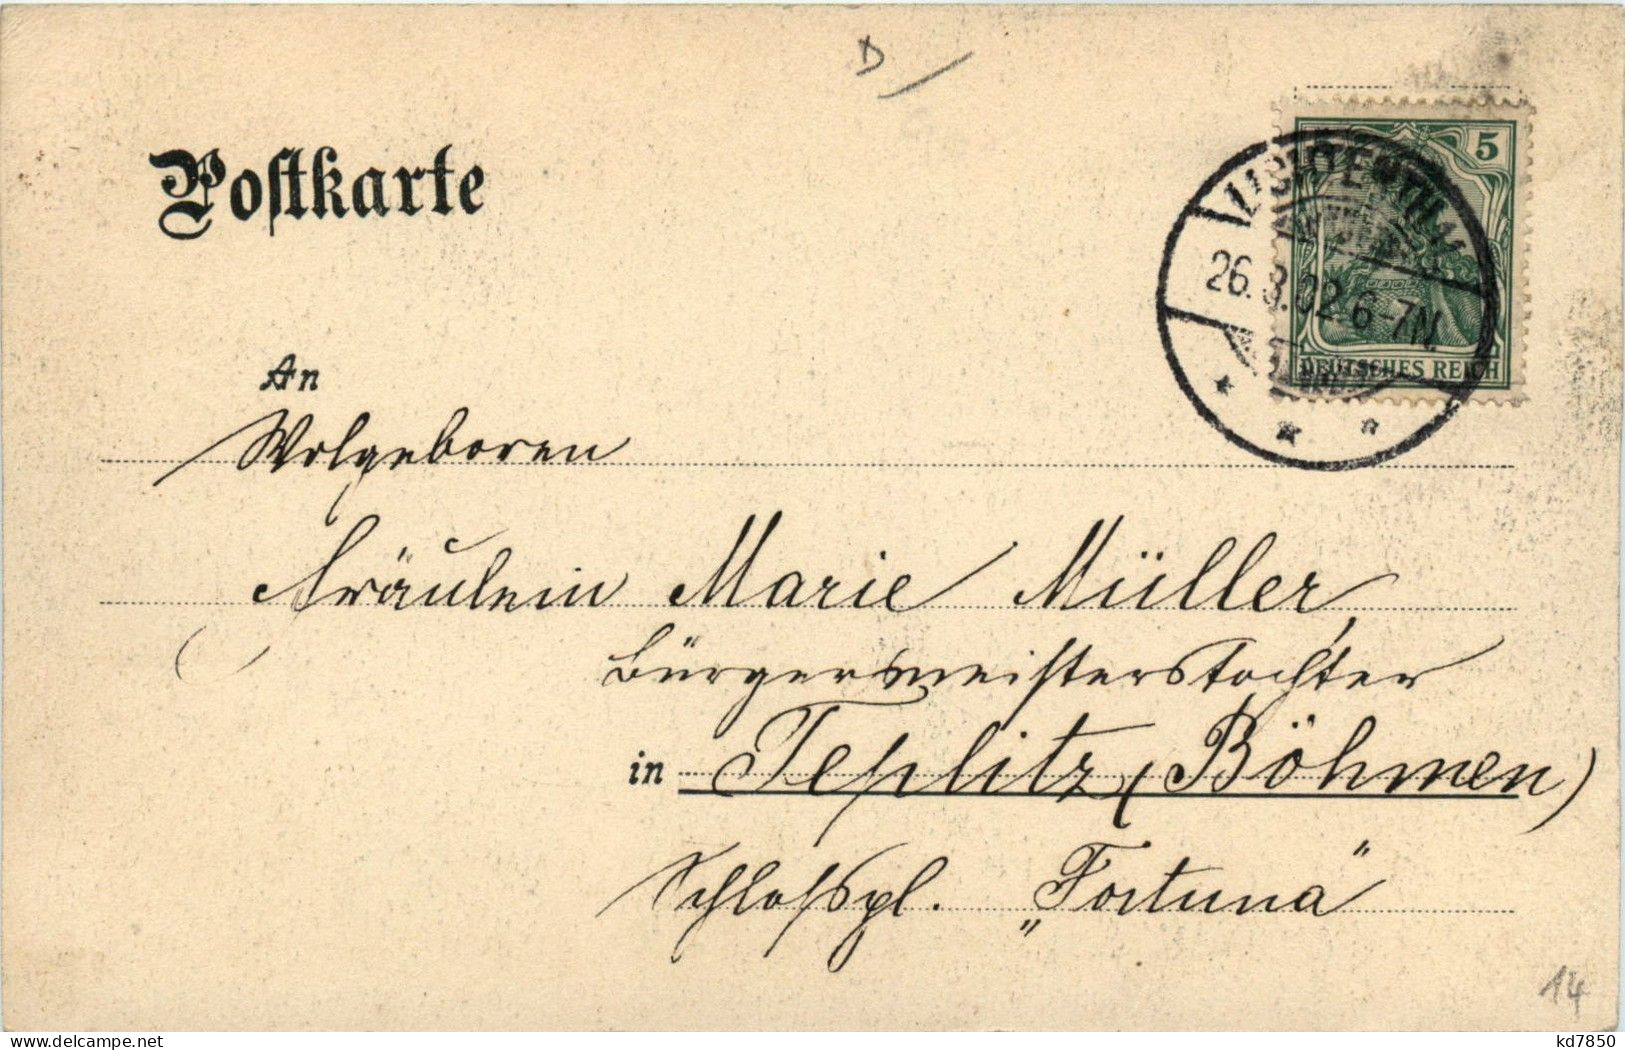 D
Postkarte
5
26.3.02.6-7N.
DEUTSCHES REICH
An
Wolgeboren
Fräulein Marie Müller,
Bürgermeisterstochter
in Teplitz (Böhmen)
Schloßpl. „Fortuna"
14
delcampe.net
kd7850